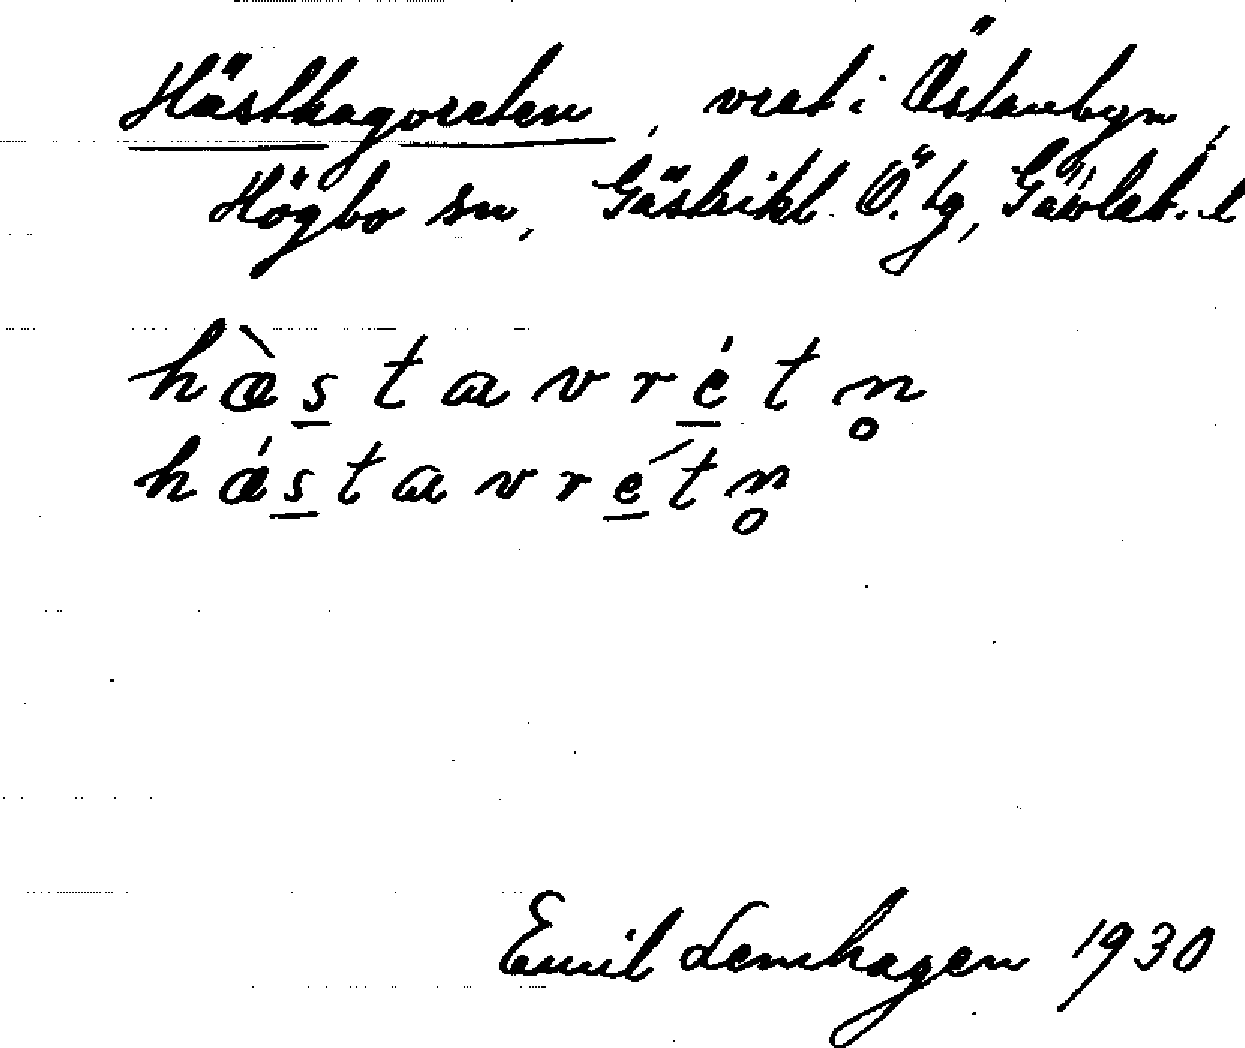 Hästhagvreten, vret i Östanbyn,
Högbo sn, Gästrikl. Ö. tg, Gävleb. l
hàstavrétn̥
hástavrétn̥
Emil Lemhagen 1930